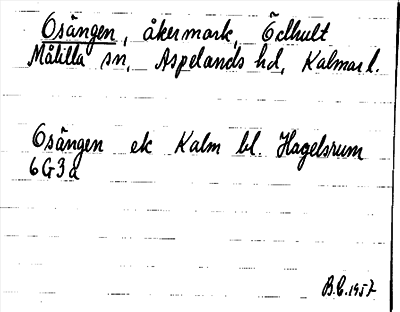 Osängen, åkermark, Ödhult
Målilla sn, Aspelands hd, Kalmar l.
Osängen ek Kalm bl. Hagelsrum
6G3a
B.E. 1957